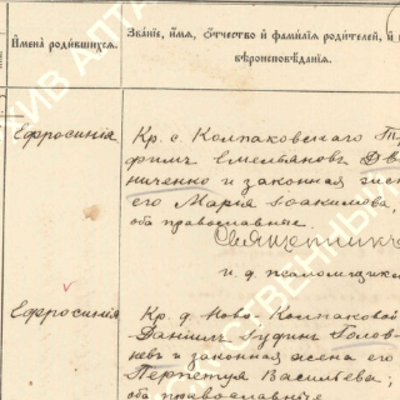 Имена̀ роди́вшихся.
Зва́нїе, и́мя, ѻ҆́тчество и҆ фами́лїя роди́телей, и҆
вѣроисповѣ́данїя.
Ефросинія
Кр. с. Колпаковскаго Тр
фимъ Емельяновъ Дв
ниченко и законная жен
его Марія Іоакимова,
оба православные.
Священникъ
и. д. псаломщика
Ефросинія
Кр. д. Ново-Колпаковой
Даніилъ Іудинъ Голов
невъ и законная жена его
Перпетуя Васильева;
оба православные